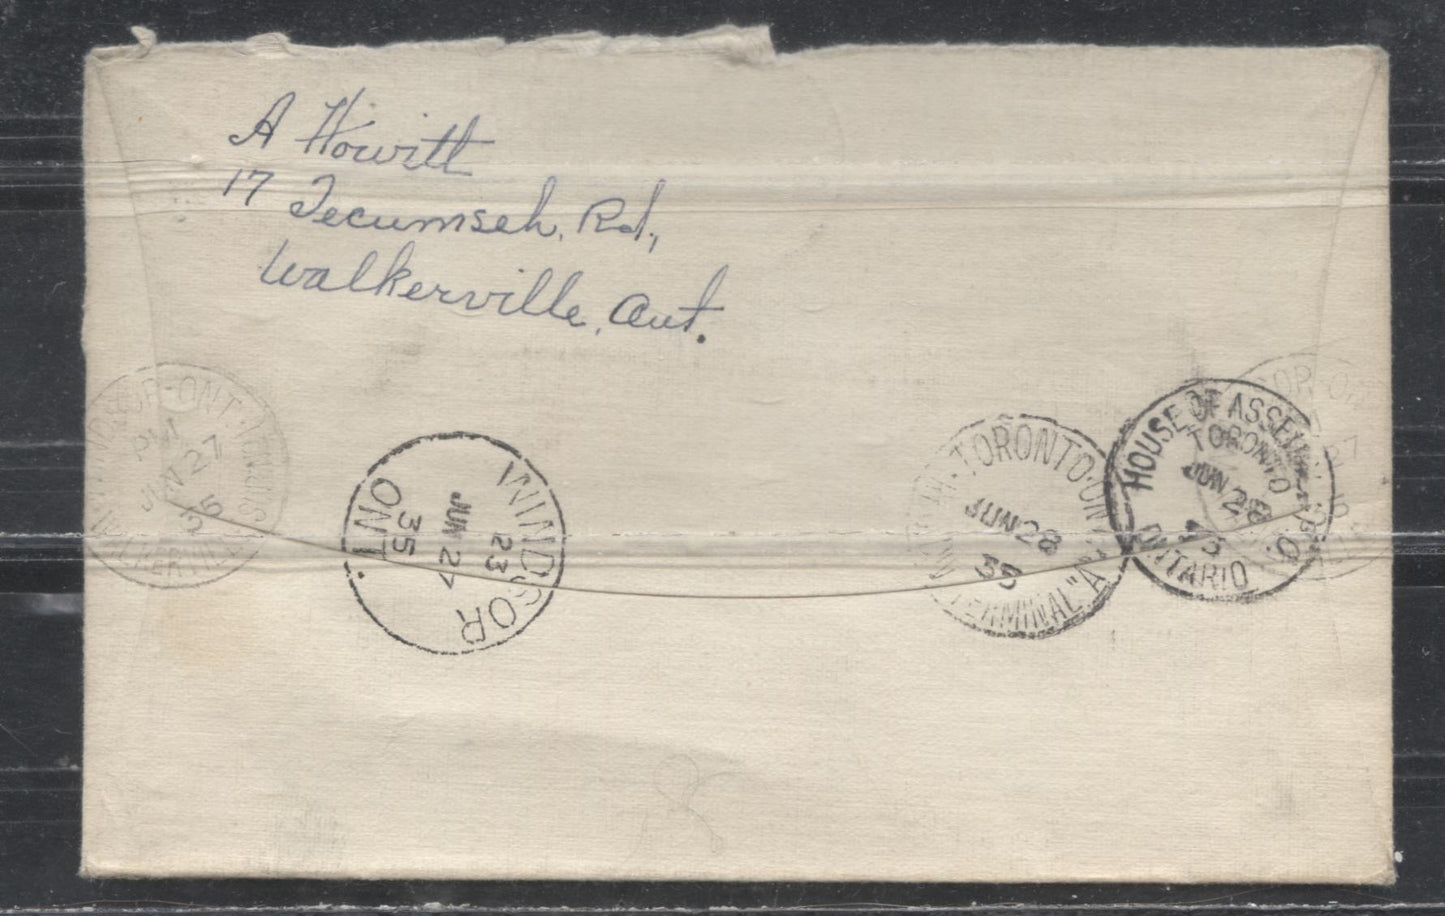 A Howitt
17 Tecumseh, Rd.,
Walkerville, Ont.
WINDSOR-ONT.
PM
JUN 27
35
WALKERVILLE
WINDSOR
23
JUN 27
35
ONT.
TORONTO-ONT.
JUN 28
35
TERMINAL "A"
HOUSE OF ASSEMBLY P.O.
TORONTO
JUN 28
35
ONTARIO
OR-ON
27